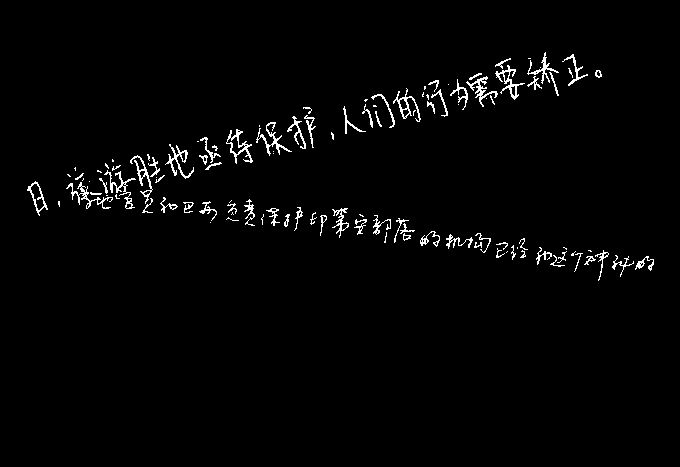 日，旅游胜地亟待保护，人们的行为需要矫正。
地官员和巴西负责保护印第安部落的机构已经和这个神秘的